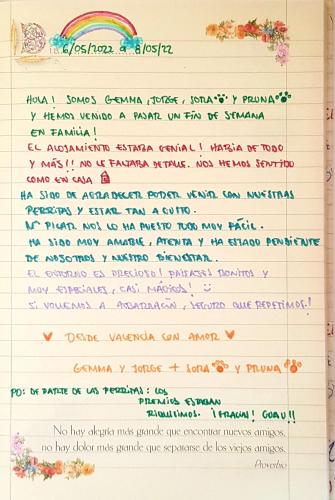 6/05/2022 a 8/05/22
HOLA! SOMOS GEMMA, JORGE, SORA Y PRUNA
Y HEMOS VENIDO A PASAR UN FIN DE SEMANA
EN FAMILIA!
EL ALOJAMIENTO ESTABA GENIAL! HABIA DE TODO
Y MÁS!! NO LE FALTABA DETALLE. NOS HEMOS SENTIDO
COMO EN CASA
HA SIDO DE AGRADECER PODER VENIR CON NUESTRAS
PERRITAS Y ESTAR TAN A GUSTO.
Mª PILAR NOS LO HA PUESTO TODO MUY FÁCIL.
HA SIDO MUY AMABLE, ATENTA Y HA ESTADO PENDIENTE
DE NOSOTROS Y NUESTRO BIENESTAR.
EL ENTORNO ES PRECIOSO! PAISAJES BONITOS Y
MUY ESPECIALES, CASI MÁGICOS! :)
SI VOLVEMOS A ALBARRACÍN, SEGURO QUE REPETIMOS!
DESDE VALENCIA CON AMOR
GEMMA Y JORGE + SORA Y PRUNA
PD: DE PARTE DE LAS PERRITAS: LOS
PREMIOS ESTABAN
RIQUISIMOS. ¡GUAU! GUAU!!
No hay alegría más grande que encontrar nuevos amigos,
no hay dolor más grande que separarse de los viejos amigos.
Proverbio